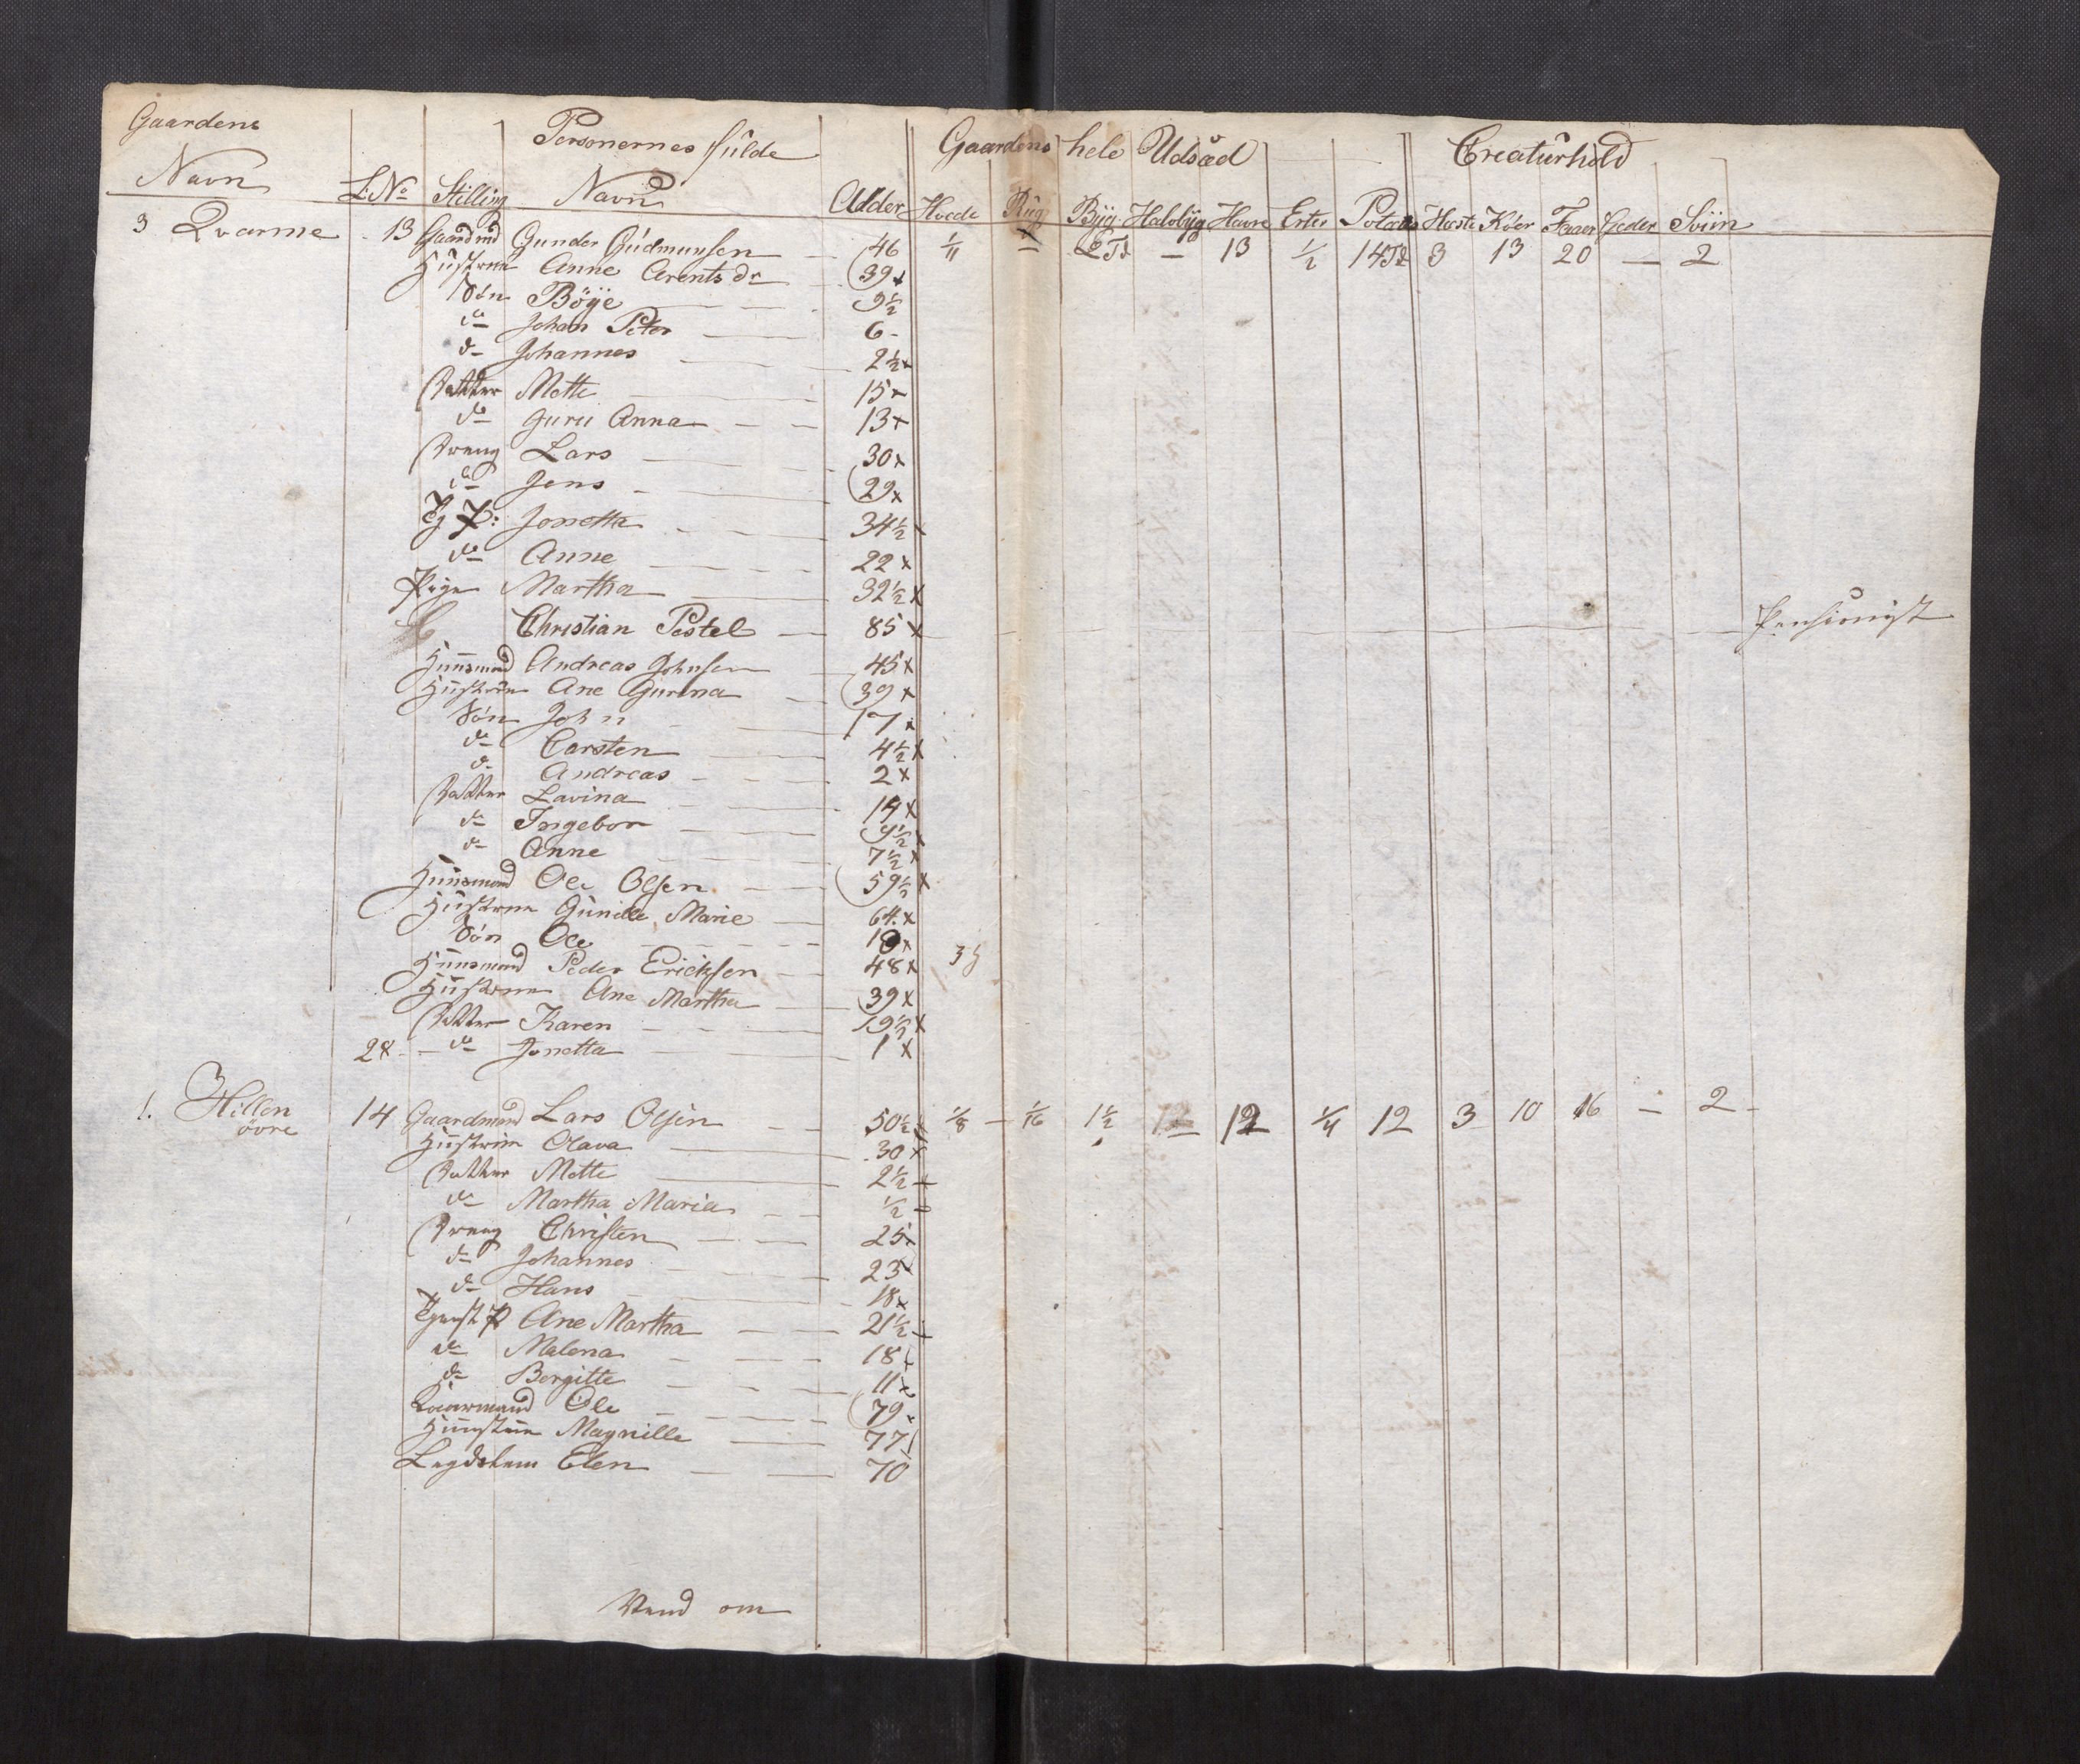 Gaardens Personernes fulde Gaardens hele Udsæd Creaturhold
Navn L: No Stilling Navn Alder Hvede Rug Byg Halvbyg Havre Erter Potates Heste Køer Faaer Geder Sviin
3 Qvarme 13 Gaardmd Gunder Gudmunsen 46 1/4 — 2 Td — 13 1/2 14 Td 3 13 20 — 2
Hustrue Anne Arents dr 39 x
Søn Böye 9 1/2
do Johan Peter 6 -
do Johannes 2 1/2 x
Datter Mette 15 x
do Guru Anna 13 x
Dreng Lars 30 x
do Jens 29 x
Tj P: Jonetta 34 1/2 x
do Anne 22 x
Pige Martha 32 1/2 x
Christian Postel 85 x Pensionist
Huusmand Andreas Johnsen 45 x
Hustrue Ane Gurina 39 x
Søn John 17 x
do Carsten 4 1/2 x
do Andreas 2 x
Datter Lavina 14 x
do Ingebor 9 1/2 x
do Anne 7 1/2 x
Huusmand Ole Olsen 59 1/2 x
Hustrue Gunille Marie 64 x
Søn Ole x
Huusmand Peder Ericksen 48 x
Hustrue Ane Martha 39 x
Datter Karen 19 1/2 x
28 - do Jonetta 1 x
1. Hillen 14 Gaardmand Lars Olsen 50 1/2 x 1/8 — 1/16 1 1/2 12 1/4 12 3 10 16 — 2 -
övre
Hustrue Olava 30 x
Datter Mette 2 1/2
do Martha Maria 1/2
Dreng Christen 25 x
do Johannes 23 x
do Hans 18 x
Tjenst P Ane Martha 21 1/2
do Malena 18
do Bergitte 11 x
Kaarmand Ole 79
Hustrue Magnille 77
Lægdslem Elen 70
Vend om